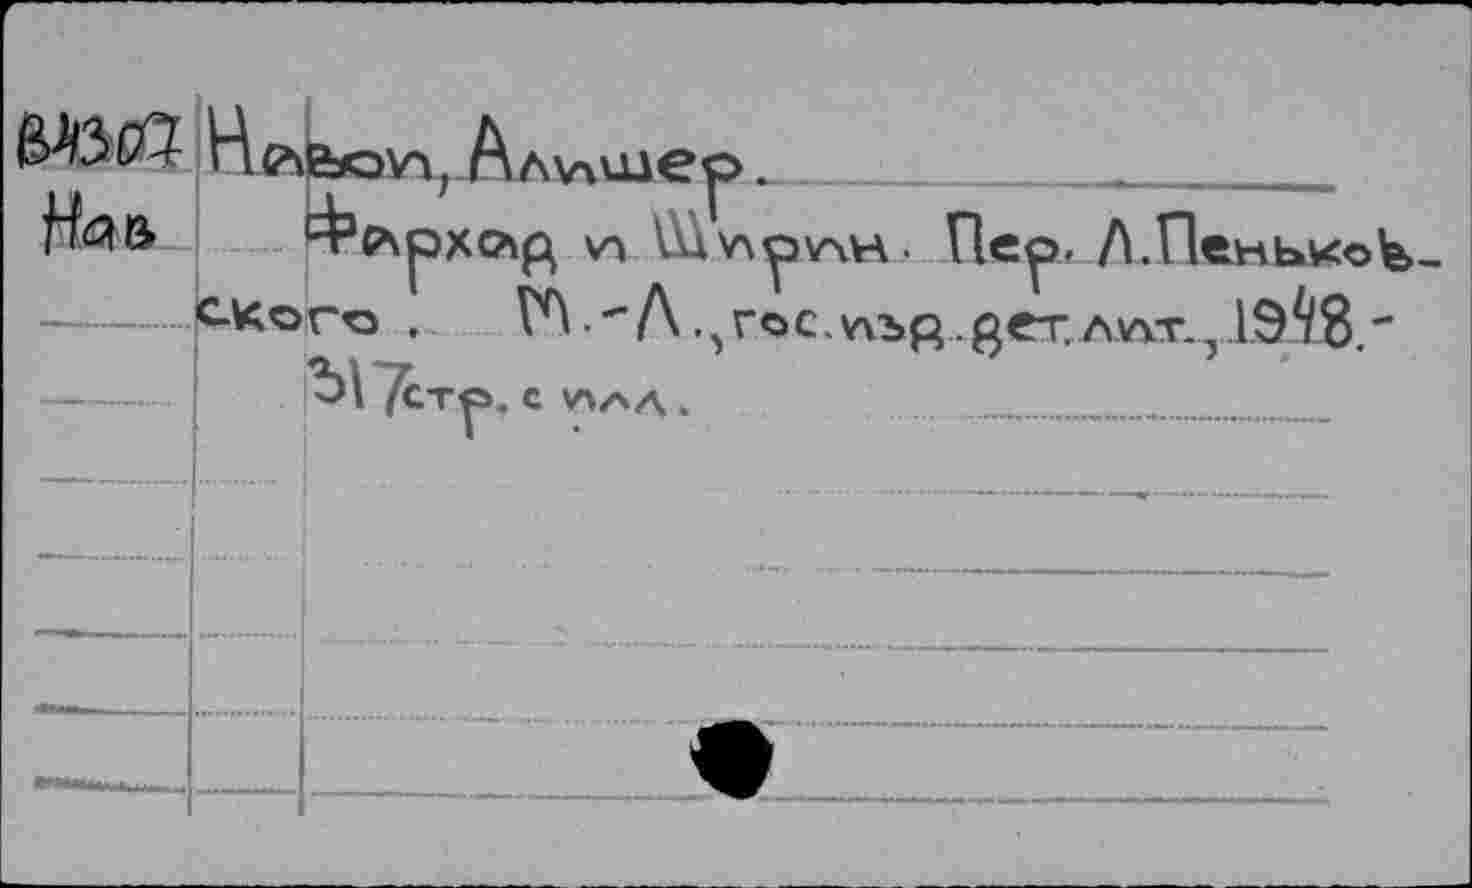 Навои, Алишер.
Нав Фархад и Ширин. Пер. Л.Пеньков-
ского. М.-Л., гос.изд.дет.лит., 1948.-
317стр. с илл.